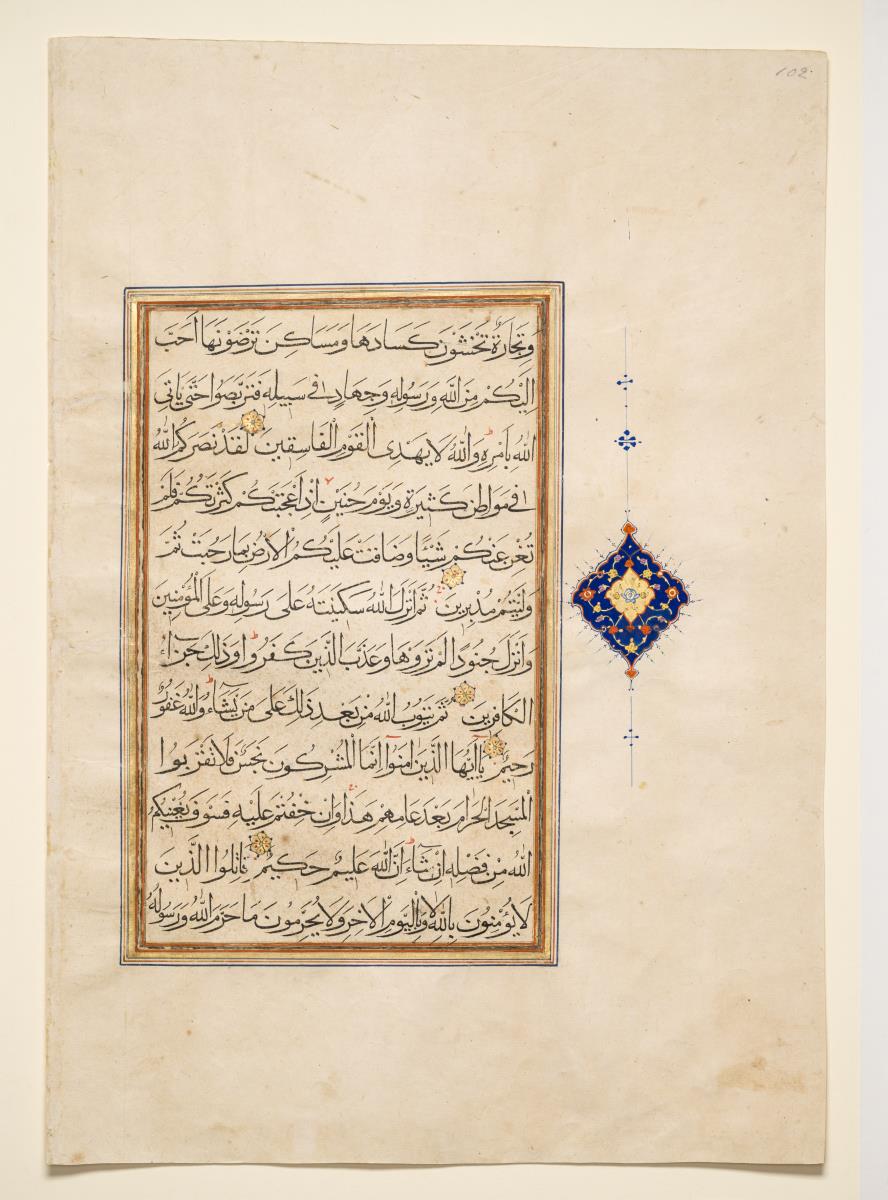 102
وَتِجَارَةٌ تَخْشَوْنَ كَسَادَهَا وَمَسَاكِنَ تَرْضَوْنَهَا أَحَبَّ
اِلَيْكُمْ مِنَ اللّٰهِ وَرَسُولِهِ وَجِهَادٍ فِى سَبِيلِهِ فَتَرَبَّصُوا حَتّٰى يَاْتِىَ
اللّٰهُ بِاَمْرِهِ وَاللّٰهُ لَا يَهْدِى الْقَوْمَ الْفَاسِقِينَ لَقَدْ نَصَرَكُمُ اللّٰهُ
فِى مَوَاطِنَ كَثِيرَةٍ وَيَوْمَ حُنَيْنٍ اِذْ اَعْجَبَتْكُمْ كَثْرَتُكُمْ فَلَمْ
تُغْنِ عَنْكُمْ شَيْئًا وَضَاقَتْ عَلَيْكُمُ الْاَرْضُ بِمَا رَحُبَتْ ثُمَّ
وَلَّيْتُمْ مُدْبِرِينَ ثُمَّ اَنْزَلَ اللّٰهُ سَكِينَتَهُ عَلَى رَسُولِهِ وَعَلَى الْمُؤْمِنِينَ
وَاَنْزَلَ جُنُودًا لَمْ تَرَوْهَا وَعَذَّبَ الَّذِينَ كَفَرُوا وَذٰلِكَ جَزَآءُ
الْكَافِرِينَ ثُمَّ يَتُوبُ اللّٰهُ مِنْ بَعْدِ ذٰلِكَ عَلَى مَنْ يَشَآءُ وَاللّٰهُ غَفُورٌ
رَحِيمٌ يَآ اَيُّهَا الَّذِينَ اٰمَنُوٓا اِنَّمَا الْمُشْرِكُونَ نَجَسٌ فَلَا تَقْرَبُوا
الْمَسْجِدَ الْحَرَامَ بَعْدَ عَامِهِمْ هَذَا وَاِنْ خِفْتُمْ عَلِيَةً فَسَوْفَ يُغْنِيكُمُ
اللّٰهُ مِنْ فَضْلِهِ اِنْ شَآءَ اِنَّ اللّٰهَ عَلِيمٌ حَكِيمٌ قَاتِلُوا الَّذِينَ
لَا يُؤْمِنُونَ بِاللّٰهِ وَلَا بِالْيَوْمِ الْاٰخِرِ وَلَا يُحَرِّمُونَ مَا حَرَّمَ اللّٰهُ وَرَسُولُهُ